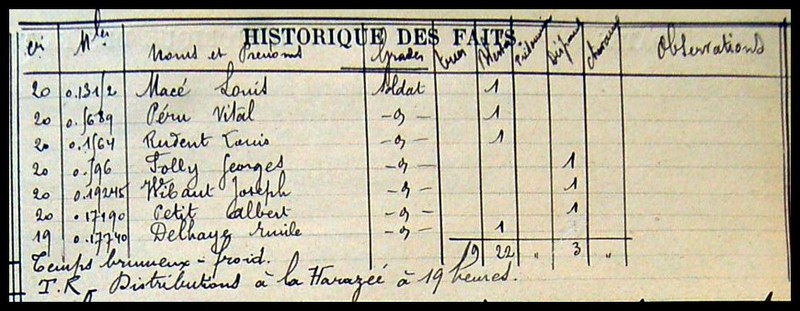 HISTORIQUE DES FAITS
Cies Mles Noms et Prénoms Grades Tués Blessés Prisonniers Disparus Chevaux Observations
20 0.1312 Macé Louis Soldat 1
20 0.1689 Péru Vital -9- 1
20 0.1564 Rudent Louis -9- 1
20 0.196 Jolly Georges -9- 1
20 0.19245 Wibaut Joseph -9- 1
20 0.17190 Petit Albert -9- 1
19 0.17740 Delhaye Emile -9- 1
9 22 " 3 "
Temps brumeux - froid.
T.R - Distributions à la Harazée à 19 heures.